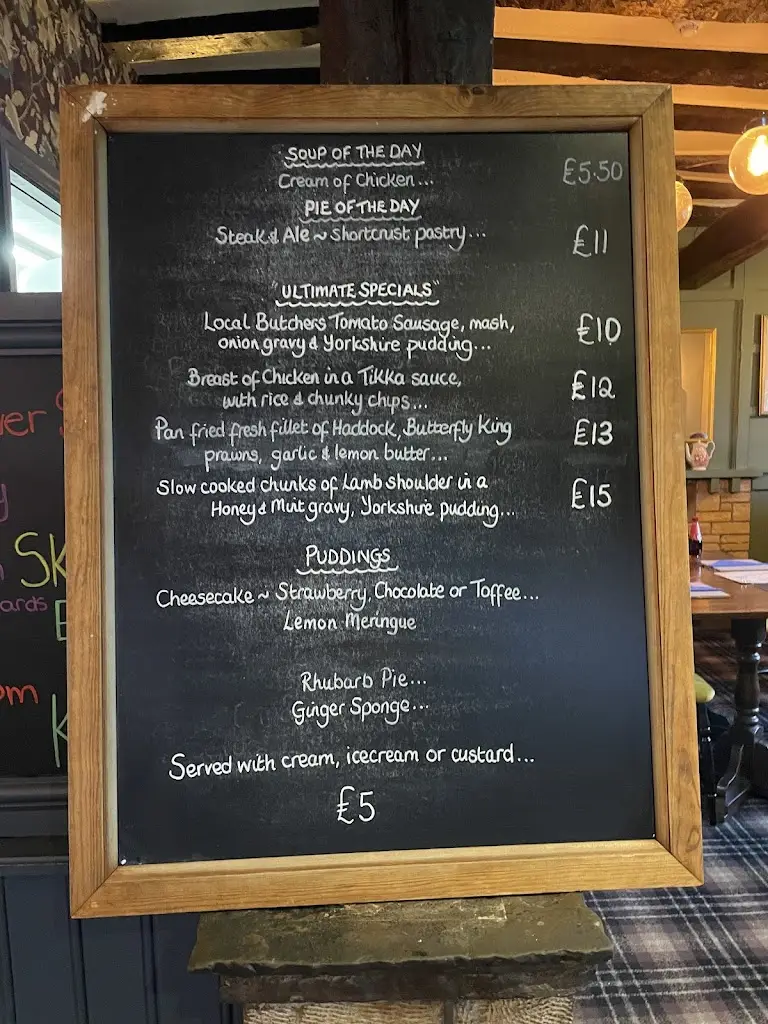 SOUP OF THE DAY
Cream of Chicken... £5.50
PIE OF THE DAY
Steak & Ale ~ Shortcrust pastry... £11
"ULTIMATE SPECIALS"
Local Butchers Tomato Sausage, mash, £10
onion gravy & Yorkshire pudding...
Breast of Chicken in a Tikka sauce, £12
with rice & chunky chips...
Pan fried fresh fillet of Haddock, Butterfly King £13
prawns, garlic & lemon butter...
Slow cooked chunks of Lamb shoulder in a £15
Honey & Mint gravy, Yorkshire pudding...
PUDDINGS
Cheesecake ~ Strawberry, Chocolate or Toffee...
Lemon Meringue
Rhubarb Pie...
Ginger Sponge...
Served with cream, icecream or custard...
£5